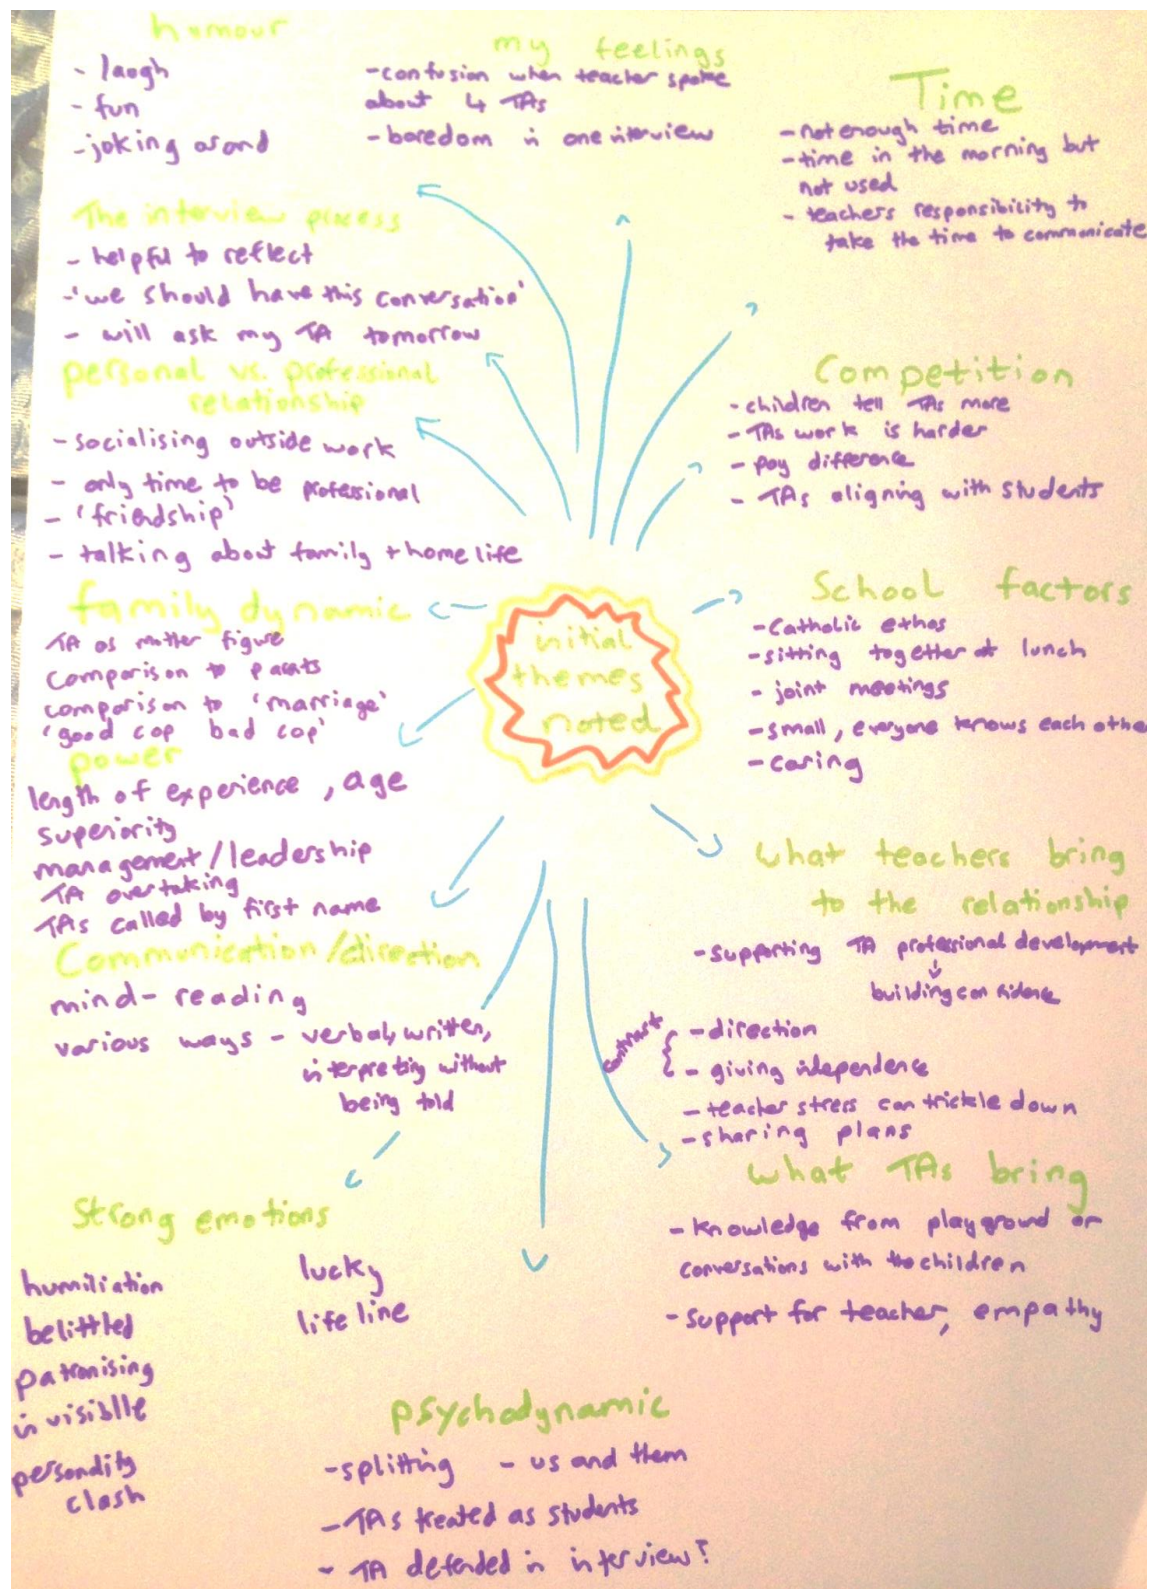 humour
- laugh
- fun
- joking arond
my feelings
- confusion when teacher spoke
about 4 TAs
- boredom in one interview
Time
- not enough time
- time in the morning but
not used
- teachers responsibility to
take the time to communicate
The interview process
- helpful to reflect
- 'we should have this conversation'
- will ask my TA tomorrow
personal vs. professional
relationship
- socialising outside work
- only time to be professional
- 'friendship'
- talking about family + home life
Competition
- children tell TAs more
- TAs work is harder
- pay difference
- TAs aligning with students
family dynamic
TA as mother figure
comparison to parents
comparison to 'marriage'
'good cop bad cop'
initial
themes
noted
School factors
- Catholic ethos
- sitting together at lunch
- joint meetings
- small, everyone knows each othe
- caring
power
length of experience, age
superiority
management/leadership
TA overtaking
TAs called by first name
what teachers bring
to the relationship
- supporting TA professional development
building confidence
contrast
- direction
- giving independence
- teacher stress can trickle down
- sharing plans
Communication/direction
mind-reading
various ways - verbal, written,
interpreting without
being told
what TAs bring
- knowledge from playground or
conversations with the children
- support for teacher, empathy
Strong emotions
humiliation
belittled
patronising
invisiblle
personality
clash
lucky
life line
psychodynamic
- splitting - us and them
- TAs treated as students
- TA defended in interview?